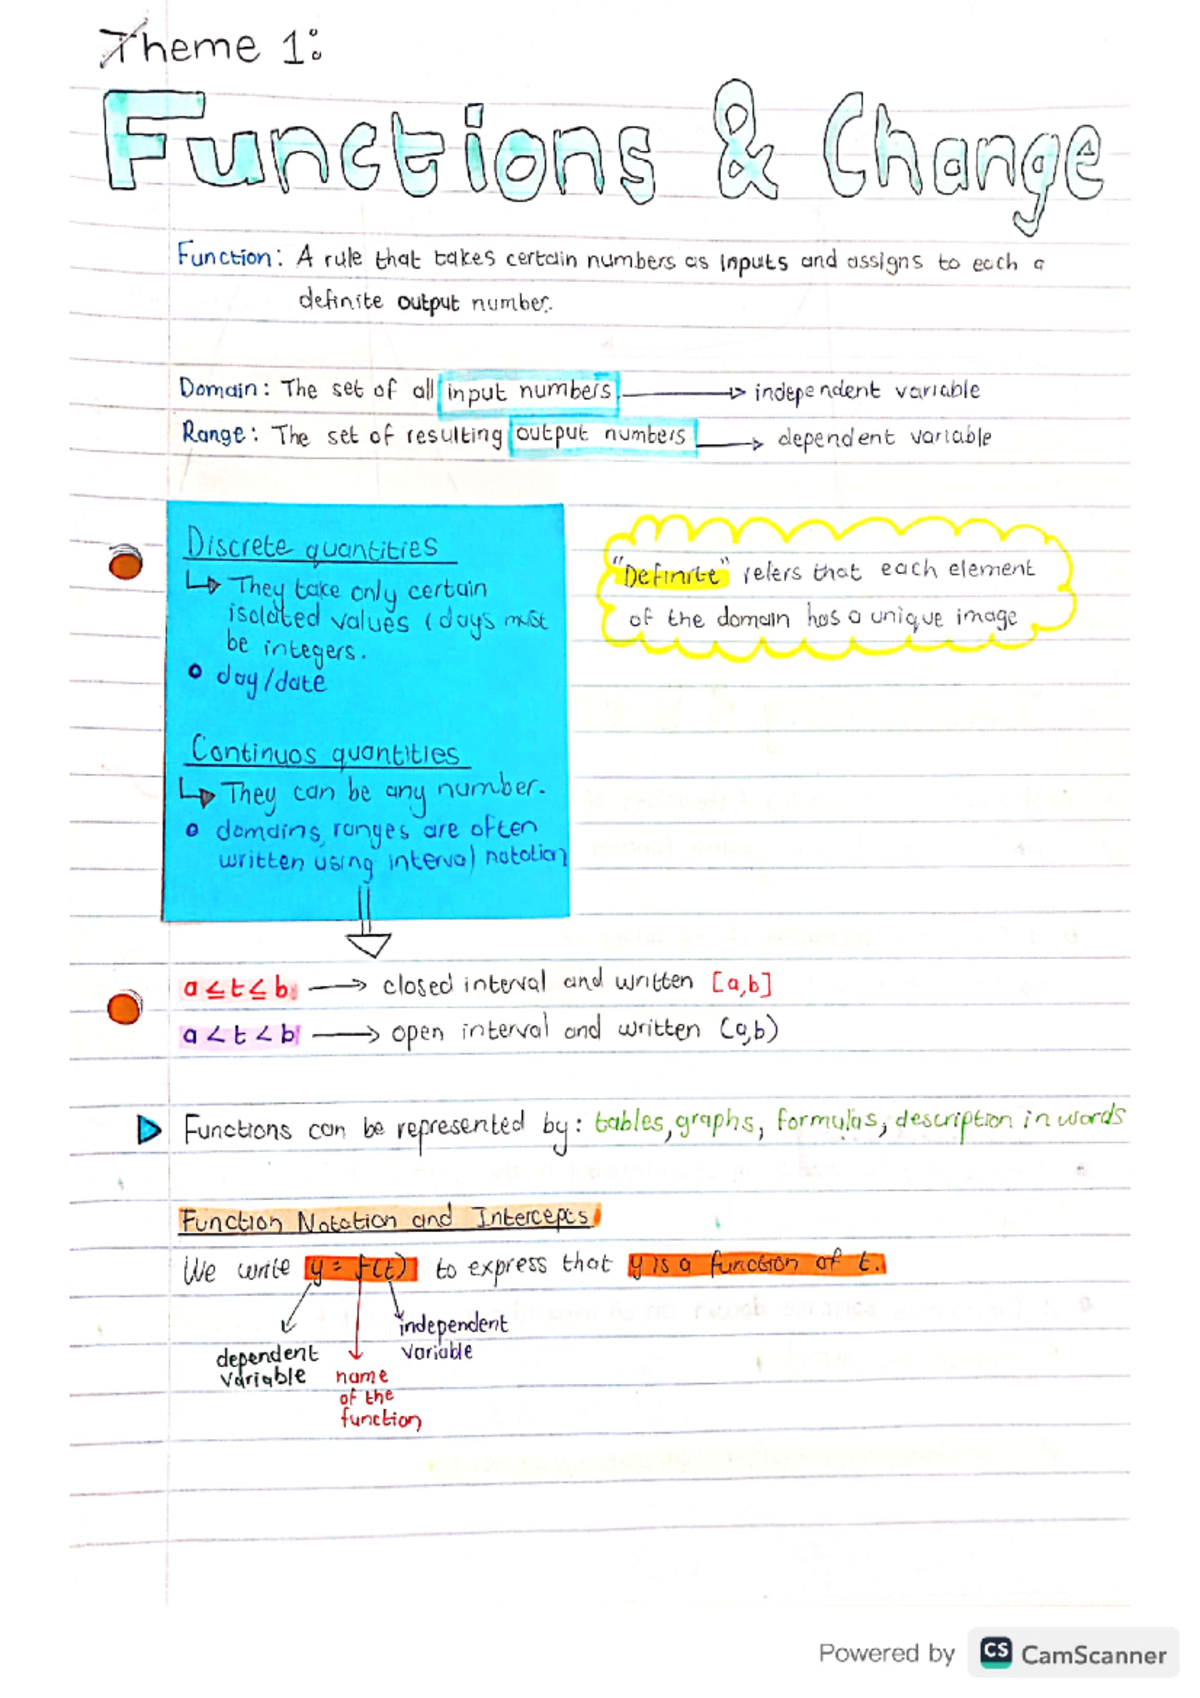 Theme 1:
Functions & Change
Function: A rule that takes certain numbers as inputs and assigns to each a
definite output number.
Domain: The set of all input numbers → independent variable
Range: The set of resulting output numbers → dependent variable
Discrete quantities
↳ They take only certain
isolated values (days must
be integers.
o day/date
"Definite" refers that each element
of the domain has a unique image
Continuos quantities
↳ They can be any number.
o domains, ranges are often
written using interval notation
a ≤ t ≤ b → closed interval and written [a,b]
a < t < b → open interval and written (a,b)
Functions can be represented by: tables, graphs, formulas, description in words
Function Notation and Intercepts
We write y = f(t) to express that y is a function of t.
dependent
variable
name
of the
function
independent
variable
Powered by CS CamScanner